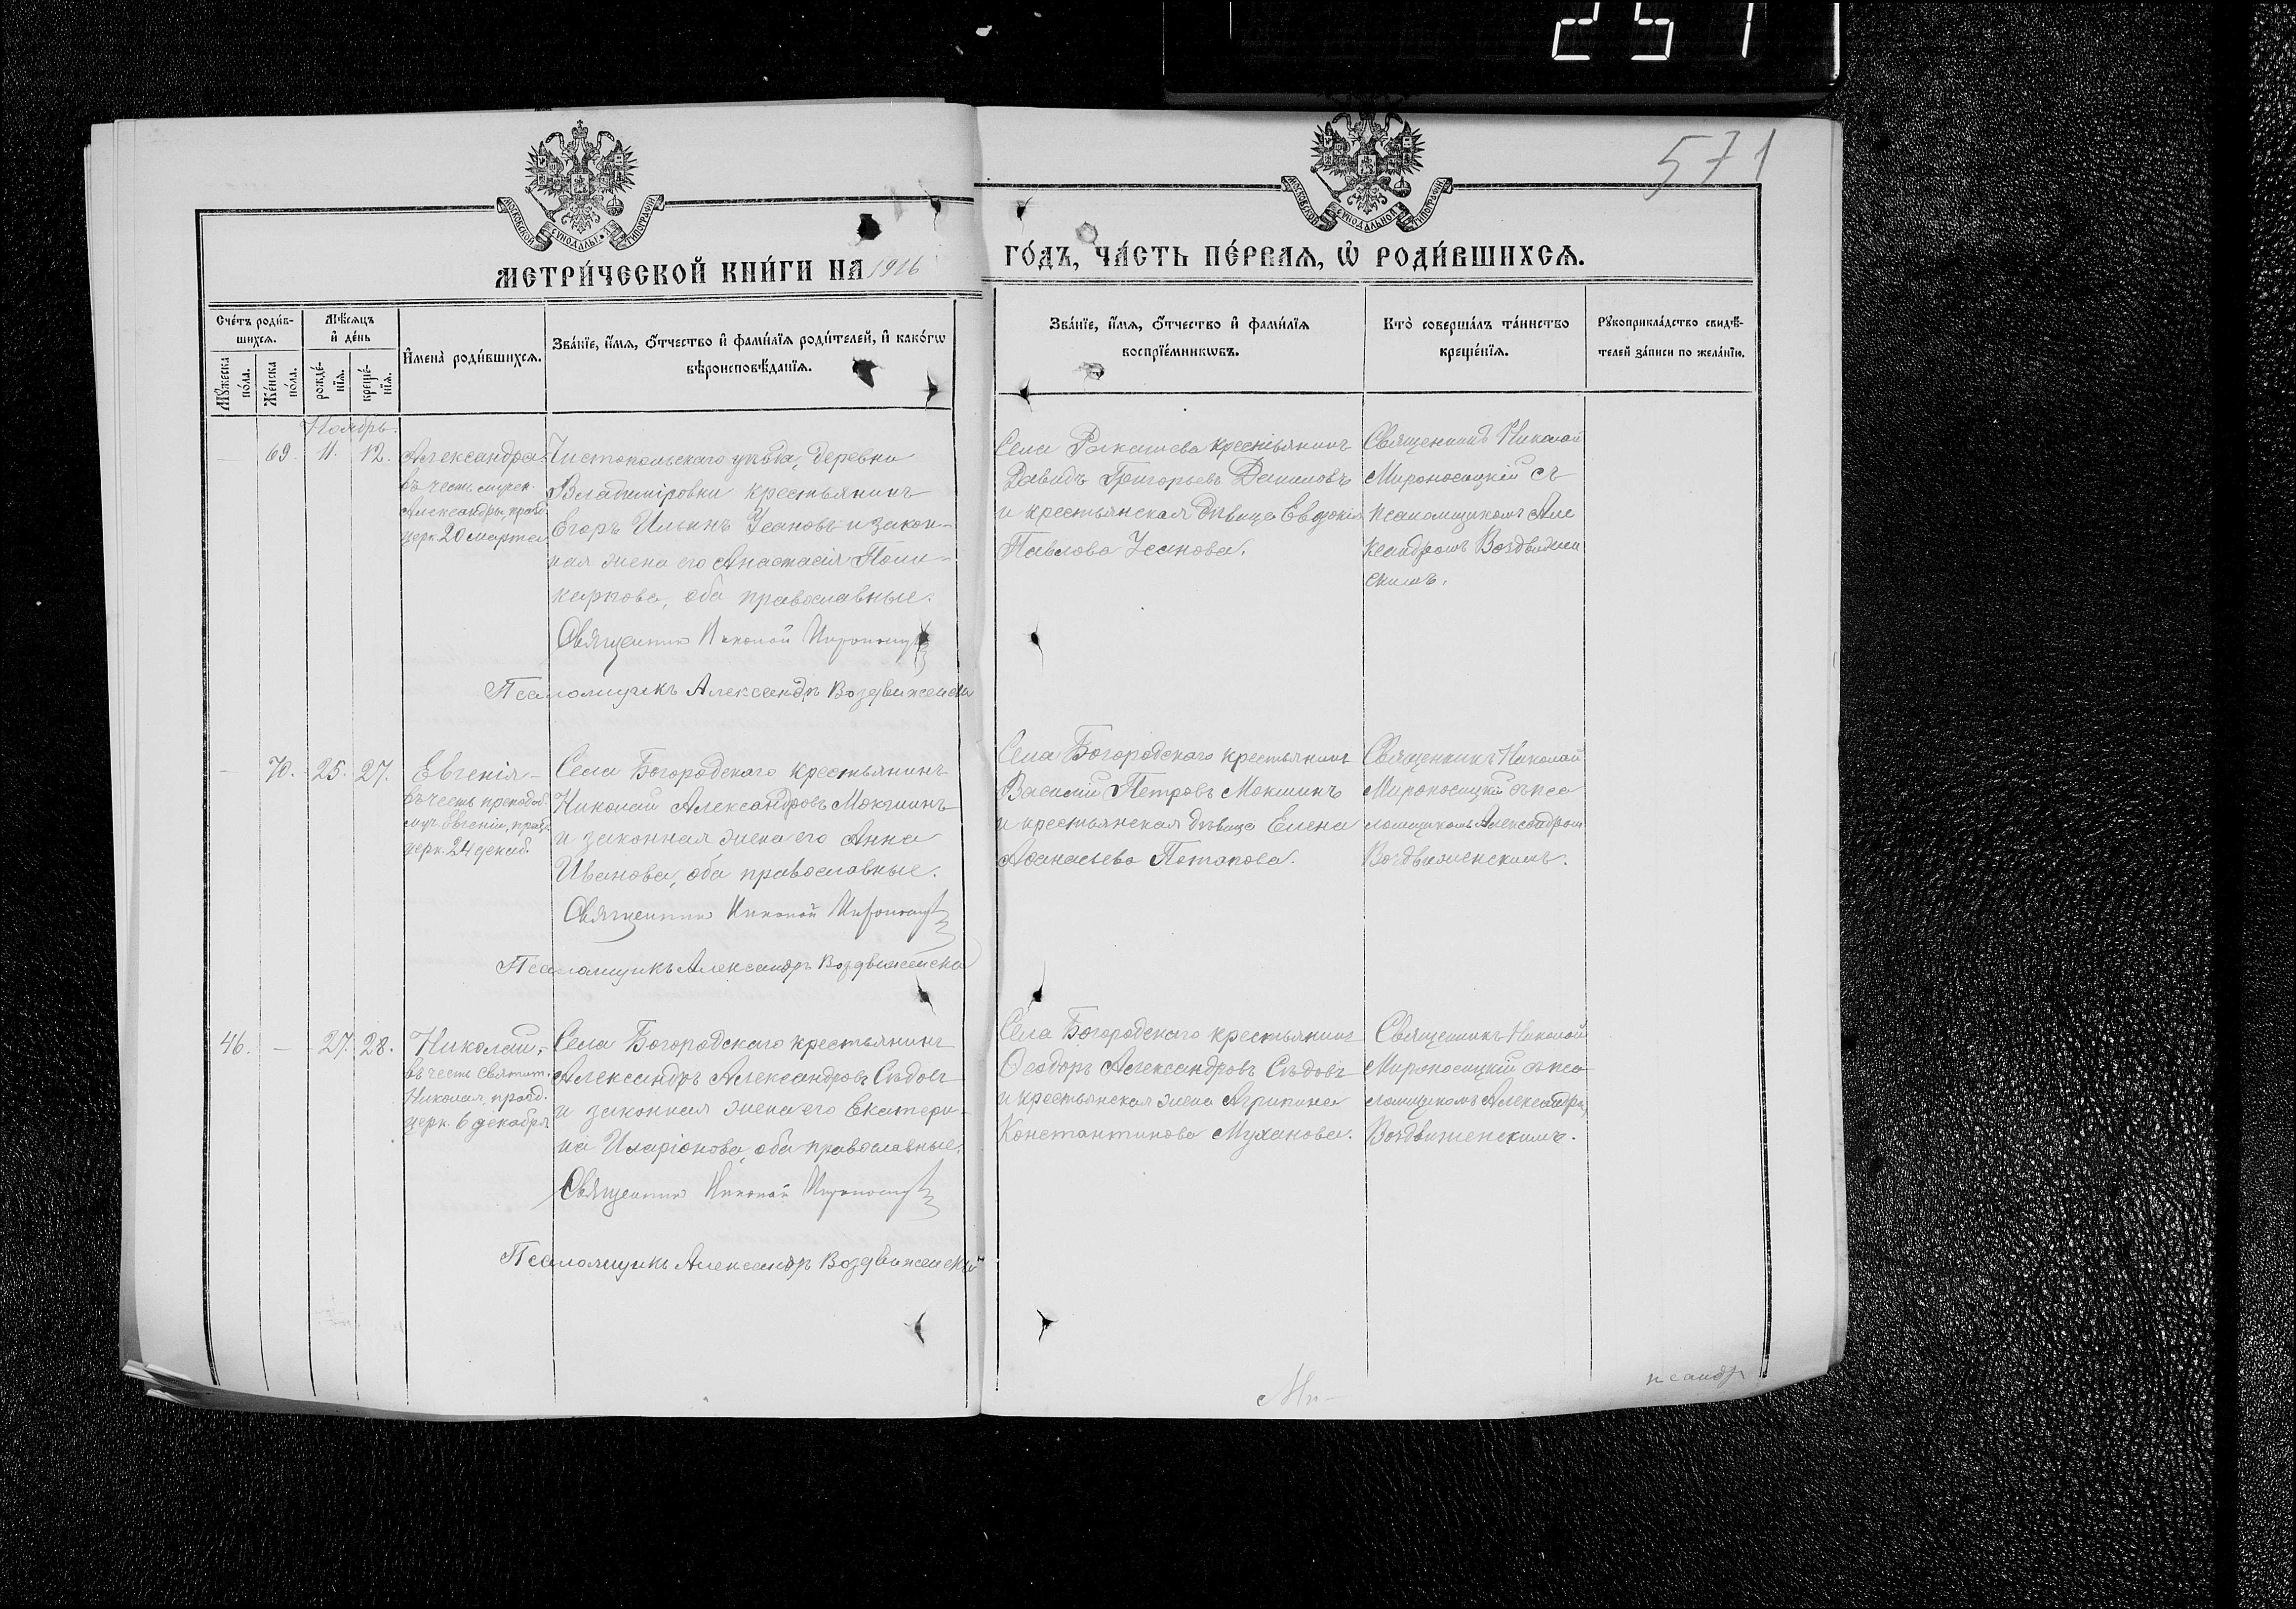 251
571
МОСКОВСКОЙ СУНОДАЛЬНОЙ ТИПОГРАФІИ
МОСКОВСКОЙ СУНОДАЛЬНОЙ ТИПОГРАФІИ
МЕТРИ́ЧЕСКОЙ КНИ́ГИ НА 1916
ГО́ДЪ, ЧА́СТЬ ПЕ́РВАЯ, Ѡ҆ РОДИ́ВШИХСЯ.
Сче́тъ роди́в-
шихся.
Мꙋ́жеска по́ла.
Же́нска по́ла.
Мѣ́сяцъ
и҆ де́нь
рожде́-
нїя.
креще́-
нїя.
И҆мена̀ роди́вшихся.
Зва́нїе, и҆́мя, ѻ҆́тчество и҆ фами́лїя роди́телей, и҆ како́гѡ
вѣроисповѣ́данїя.
Зва́нїе, и҆́мя, ѻ҆́тчество и҆ фами́лїя
воспрїе́мникѡвъ.
Кто̀ соверша́лъ та́инство
креще́нїя.
Рꙋкоприкла́дство свидѣ́-
телей за́писи по жела́нїю.
Ноябрь.
— 69. 11. 12.
Александра
въ честь мучен.
Александры, празд.
церк. 20 марта
Чистопольскаго уѣзда, деревни
Владиміровки крестьянинъ
Егоръ Ильинъ Усановъ и закон-
ная жена его Анастасія Поли-
карпова, оба православные.
Священникъ Николай Мироносицкій
Псаломщикъ Александръ Воздвиженскій
Села крестьянинъ
Давидъ Григорьевъ Даниловъ
и крестьянская дѣвица Евдокія
Павлова Усанова.
Священникъ Николай
Мироносицкій съ
псаломщикомъ Але
ксандромъ Воздвижен
скимъ.
— 70. 25. 27.
Евгенія —
въ честь преподоб.
муч. Евгеніи, празд.
церк. 24 декаб.
Села Богородскаго крестьянинъ
Николай Александровъ Мокшинъ
и законная жена его Анна
Иванова, оба православные.
Священникъ Николай Мироносицкій
Псаломщикъ Александръ Воздвиженскій
Села Богородскаго крестьянинъ
Василій Петровъ Мокшинъ
и крестьянская дѣвица Елена
Аѳанасьева Потапова.
Священникъ Николай
Мироносицкій съ пса
ломщикомъ Александромъ
Воздвиженскимъ.
46. — 27. 28.
Николай, —
въ честь святит.
Николая, празд.
церк. 6 декабря
Села Богородскаго крестьянинъ
Александръ Александровъ Сѣдовъ
и законная жена его Екатери-
на Иларіонова, оба православные.
Священникъ Николай Мироносицкій
Псаломщикъ Александръ Воздвиженскій
Села Богородскаго крестьянинъ
Ѳеодоръ Александровъ Сѣдовъ
и крестьянская жена Агрипина
Константинова Муханова.
Священникъ Николай
Мироносицкій съ пса-
ломщикомъ Александро
Воздвиженскимъ.
Ми-
ксандр